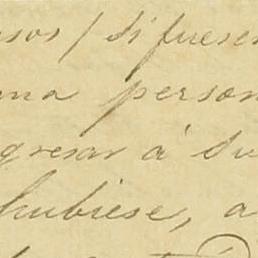 sos / si fuesen
una person
gresar á su
hubiese, a